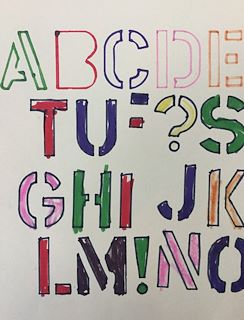 ABCDE
TUF?S
GHIJK
LM!NO